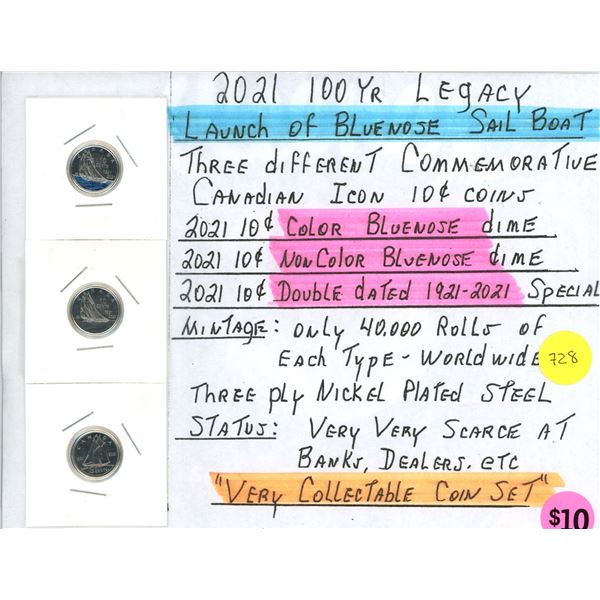 2021 100 YR LEGACY
LAUNCH OF BLUENOSE SAIL BOAT
THREE DIFFERENT COMMEMORATIVE
CANADIAN ICON 10¢ COINS
2021 10¢ COLOR BLUENOSE DIME
2021 10¢ NON COLOR BLUENOSE DIME
2021 10¢ DOUBLE DATED 1921-2021 SPECIAL
MINTAGE: ONLY 40.000 ROLLS OF
EACH TYPE - WORLDWIDE
728
THREE PLY NICKEL PLATED STEEL
STATUS: VERY VERY SCARCE AT
BANKS, DEALERS. ETC
"VERY COLLECTABLE COIN SET"
$10